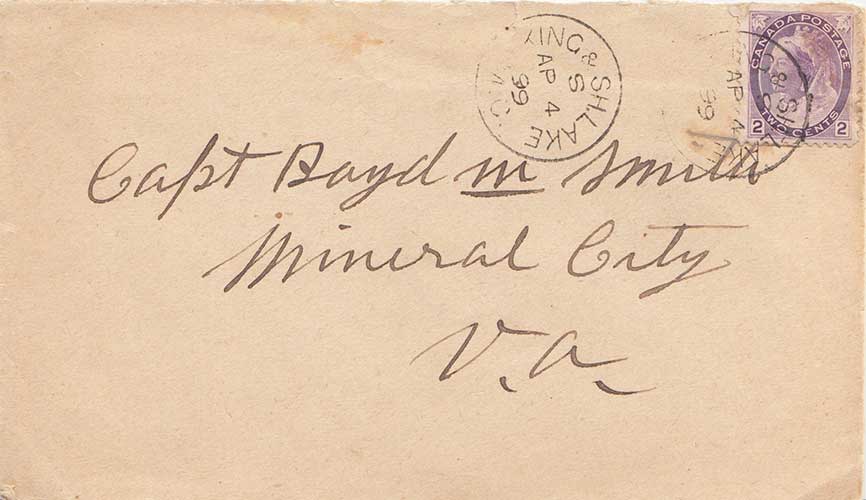 KING & SH.LAKE
S
AP 4
99
CANADA POSTAGE
2 TWO CENTS 2
AP 4
99
Capt Boyd m Smith
Mineral City
V.A.